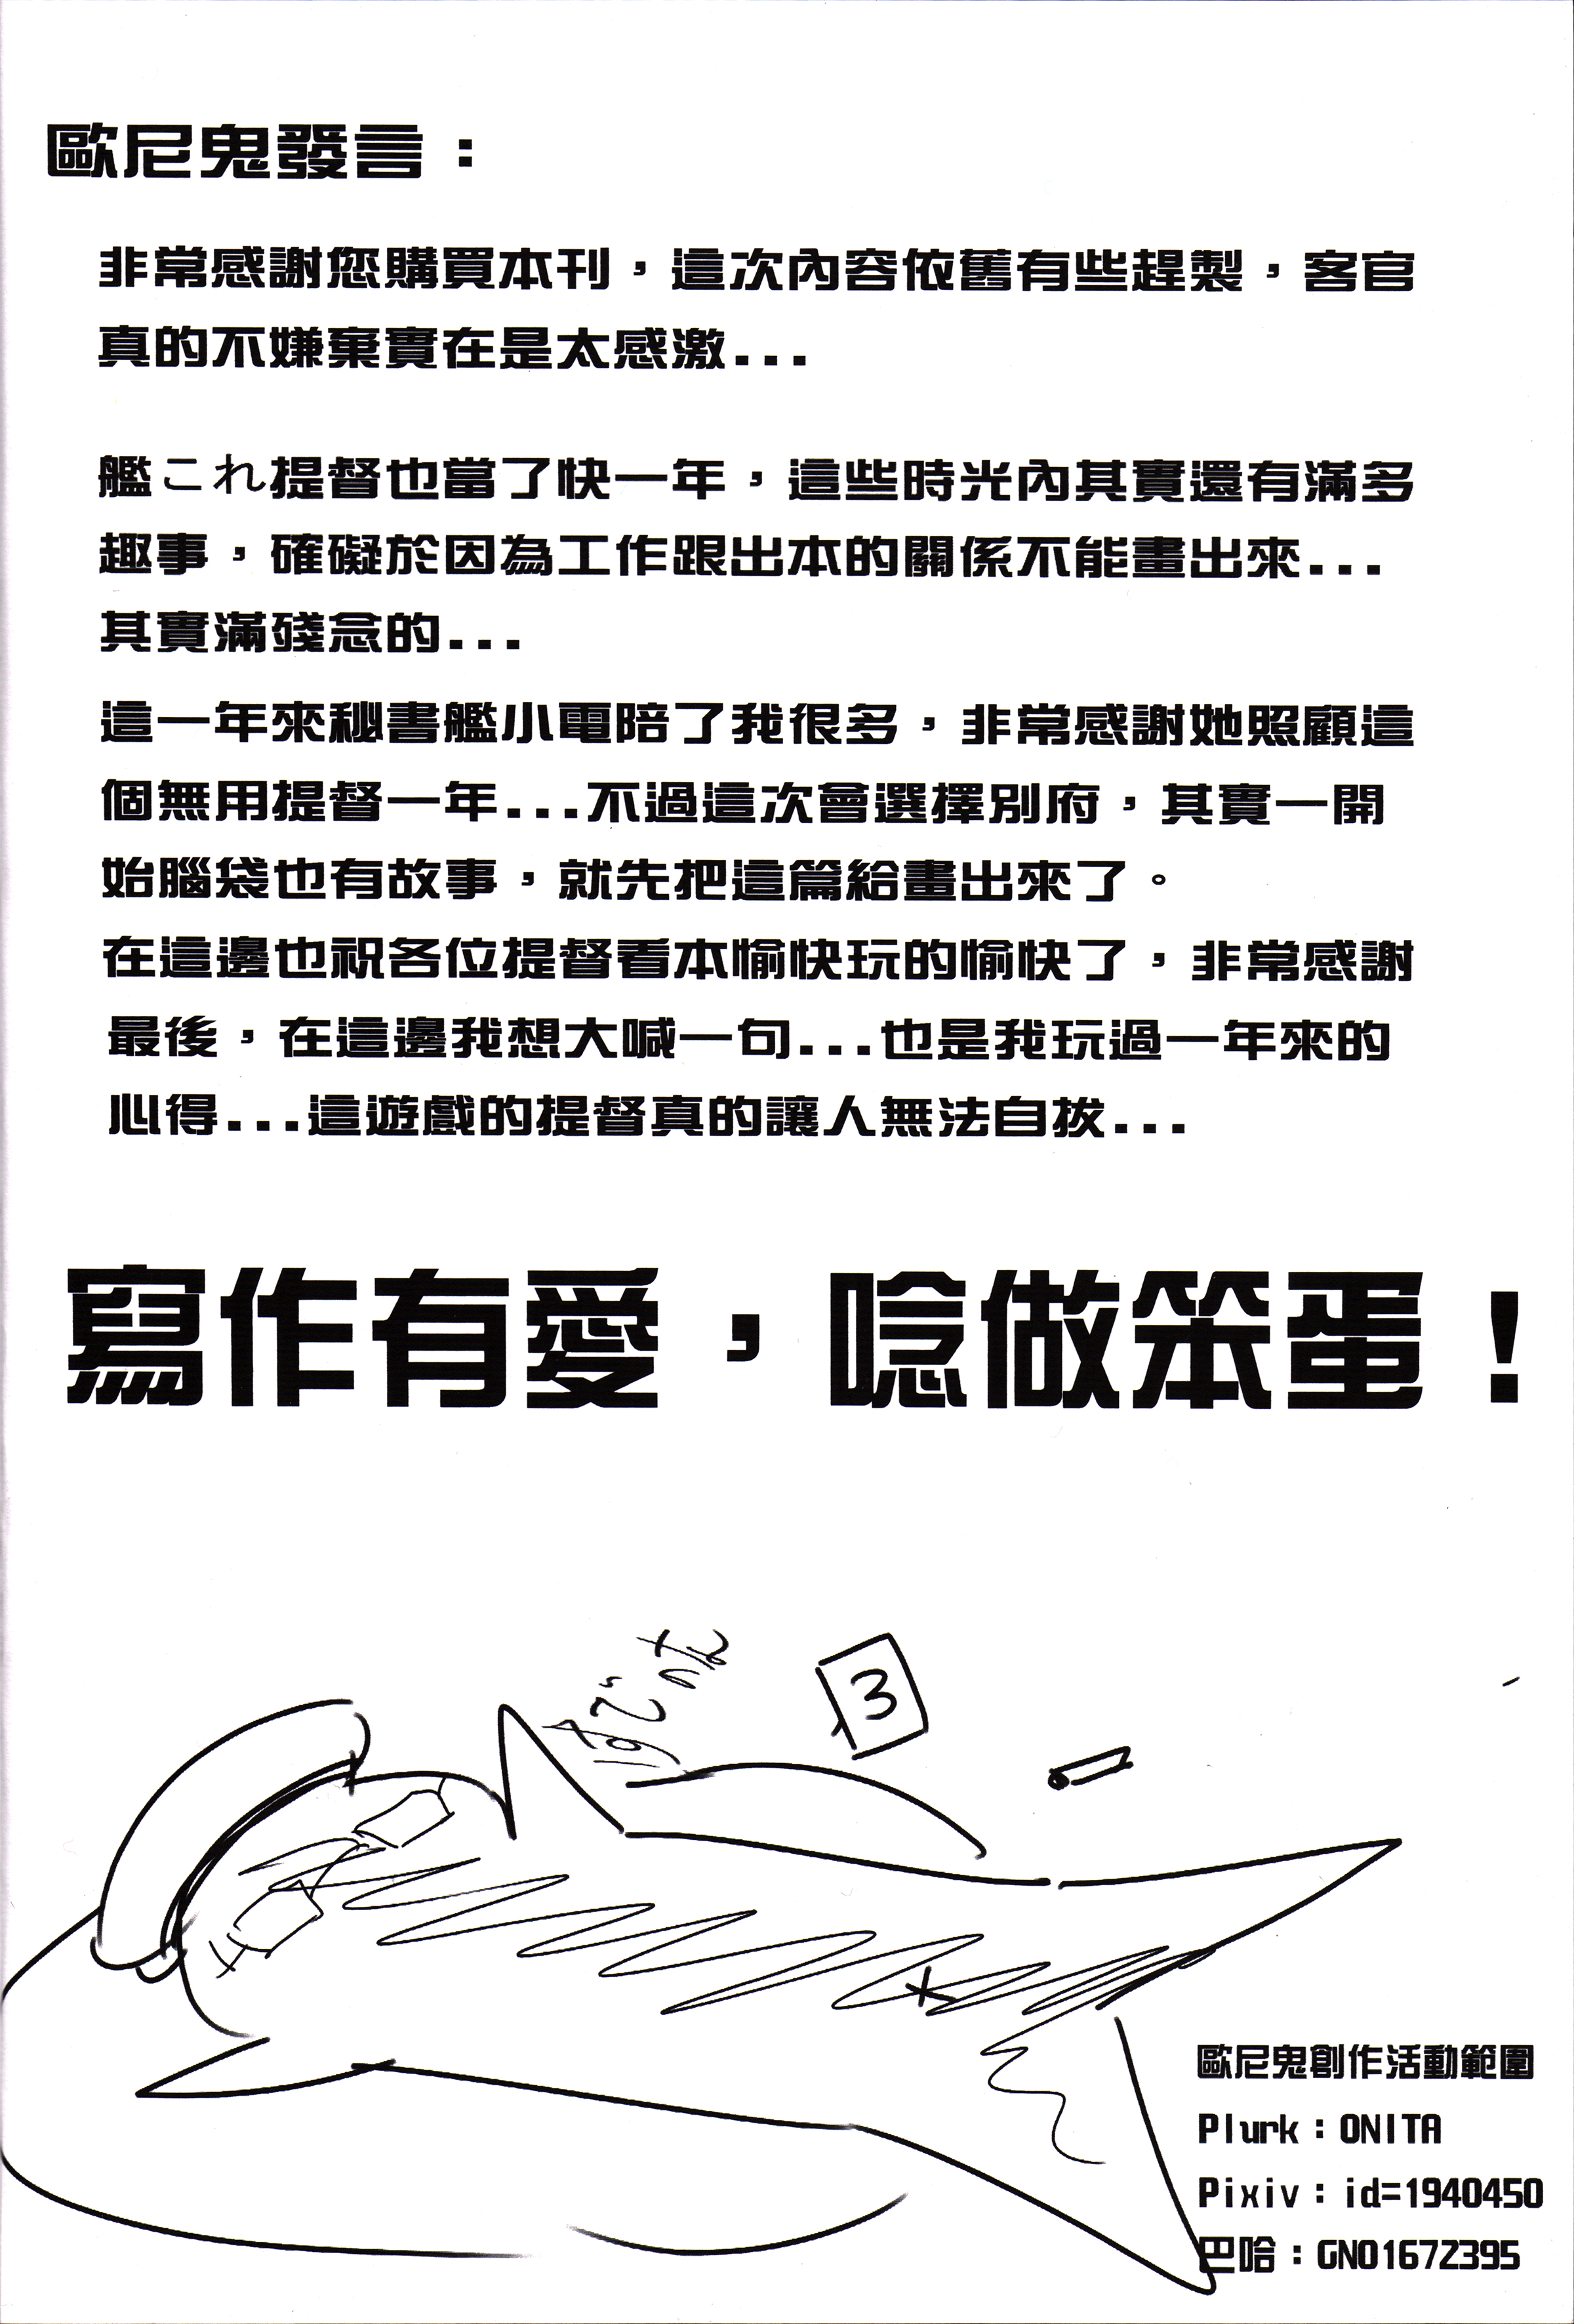 歐尼鬼發言：
非常感謝您購買本刊，這次內容依舊有些趕製，客官
真的不嫌棄實在是太感激...
艦これ提督也當了快一年，這些時光內其實還有滿多
趣事，確礙於因為工作跟出本的關係不能畫出來...
其實滿殘念的...
這一年來秘書艦小電陪了我很多，非常感謝她照顧這
個無用提督一年...不過這次會選擇別府，其實一開
始腦袋也有故事，就先把這篇給畫出來了。
在這邊也祝各位提督看本愉快玩的愉快了，非常感謝
最後，在這邊我想大喊一句...也是我玩過一年來的
心得...這遊戲的提督真的讓人無法自拔...
寫作有愛，唸做笨蛋！
3
歐尼鬼創作活動範圍
Plurk：ONITA
Pixiv：id=1940450
巴哈：GNO1672395